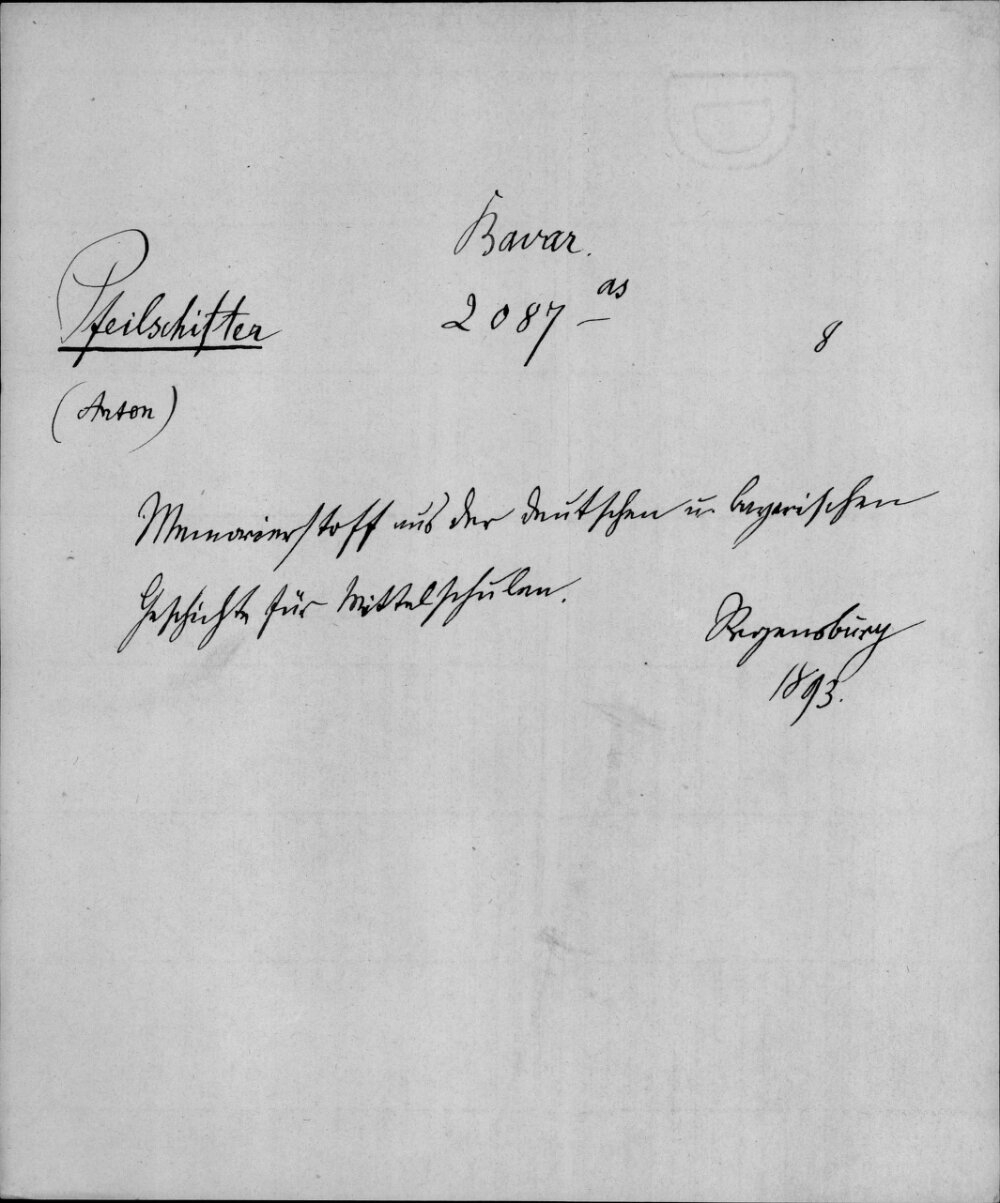 Bavar.
2087 as
8
Pfeilschifter
(Anton)
Memorierstoff aus der deutschen u. bayerischen
Geschichte für Mittelschulen.
Regensburg
1893.